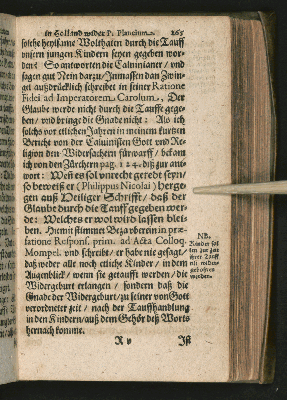 in Holland wider P. Plancium. 265
solche heylsame Wolthaten durch die Tauff
unsern jungen Kindern seyen gegeben wor-
den? So antworten die Calvinianer / und
sagen gut Nein darzu/Inmassen dan Zwin-
gel außdrücklich schreibet in seiner Ratione
Fidei ad Imperatorem Carolum, Der
Glaube werde nicht durch die Tauffe gege-
ben / und bringe die Gnade nicht: Als ich
solchs vor etlichen Jahren in meinem kurtzen
Bericht von der Calvinisten Gott und Re-
ligion den Widersachern fürwarff / bekam
ich von den Zürchern pag. 124. diß zur ant-
wort: Weil es sol unrecht geredt seyn/
so beweiß er (Philippus Nicolai) Herge-
gen auß Heiliger Schrifft, daß der
Glaube durch die Tauff gegeben wer-
de: Welchs er wol wird lassen blei-
ben. Hiemit stimmet Beza uberein in præ-
fatione Respons. prim. ad Acta Colloq.
Mompel. und schreibt/ er habe nie gesagt/
daß weder alle noch etliche Kinder / in dem
Augenblick / wenn sie getaufft werden / die
Widergeburt erlangen / sondern daß die
Gnade der Widergeburt/ zu seiner von Gott
verordneter zeit / nach der Tauffhandlung
in den Kindern/ auß dem Gehör deß Worts
hernach komme.
NB.
Kinder sol
len zur zeit
ihrer Tauff
nit wider-
geboren
werden.
R v Ist